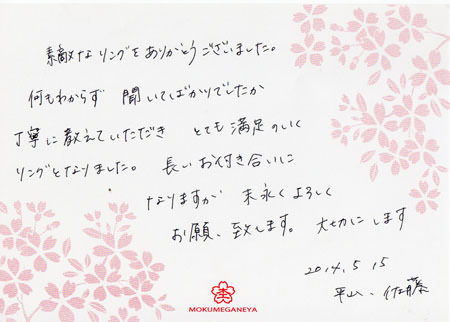 素敵なリングをありがとうございました。
何もわからず 聞いてばかりでしたが
丁寧に教えていただき とても満足のいく
リングとなりました。 長いお付き合いに
なりますが 末永くよろしく
お願い致します。 大切にします
2014.5 15
平山、佐藤
MOKUMEGANEYA